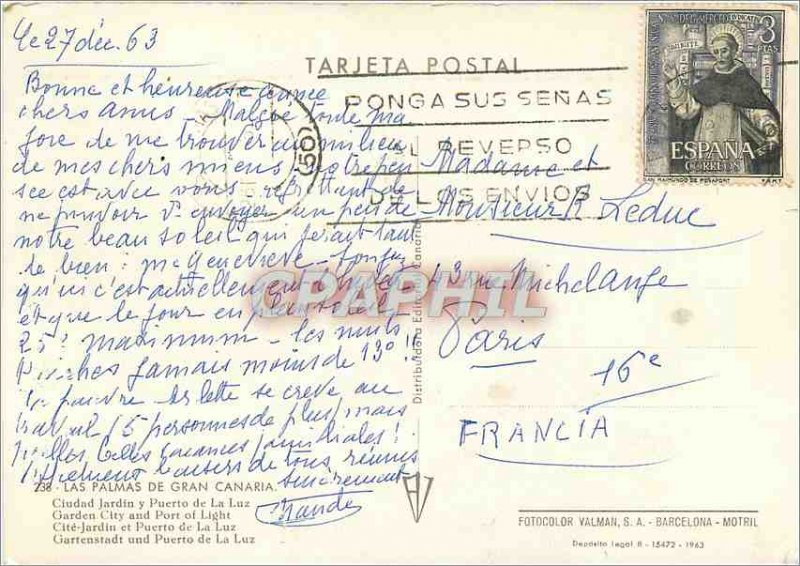 le 27 déc. 63
Bonne et heureuse année
chers amis - Malgré toute ma
joie de me trouver au milieu
de mes chers miens
est avec vous regrettant de
ne pouvoir v. envoyer un peu de
notre beau soleil qui ferait tant
de bien à ma Geneviève
qu'ici c'est actuellement
et que le jour en plein soleil
25° maximum - les nuits
jamais moins de 13° !!
pauvre Arlette se crève au
travail 15 personnes de plus mais
belles vacances familiales !
baisers de tous réunis
sincèrement
TARJETA POSTAL
PONGA SUS SEÑAS
AL REVERSO
DE LOS ENVIOS
(50)
3
PTAS
ESPAÑA
CORREOS
SAN RAIMUNDO DE PEÑAFORT
F.N.M.T.
Madame et
Monsieur R Leduc
43 rue Michel Ange
Paris
16e
FRANCIA
CPAPHIL
Distribuidora Editorial Canaria
238 - LAS PALMAS DE GRAN CANARIA.
Ciudad Jardín y Puerto de La Luz
Garden City and Port of Light
Cité-Jardin et Puerto de La Luz
Gartenstadt und Puerto de La Luz
FOTOCOLOR VALMAN, S. A. - BARCELONA - MOTRIL
Depósito Legal B - 15472 - 1963